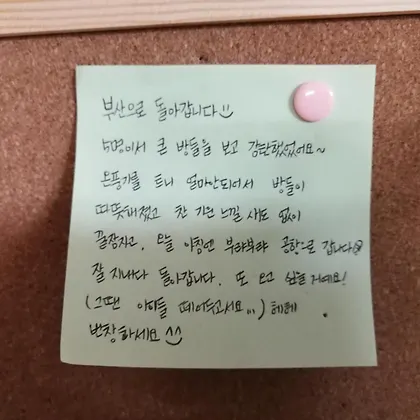 부산으로 돌아갑니다☺
5명이서 큰 방들을 보고 감탄했었어요~
온풍기를 트니 얼마안되어서 방들이
따뜻해졌고 찬 기운 느낄 새도 없이
꿀잠자고, 오늘 아침엔 부랴부랴 공항으로 갑니다
잘 지내다 돌아갑니다. 또 오고 싶을 거예요!
(그땐 아이들 떼어두고서요,,,) 헤헤
번창하세요 ^^